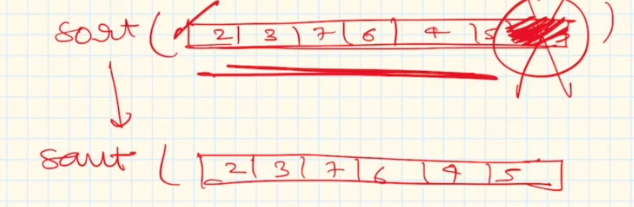 sort ( 2 | 3 | 7 | 6 | 4 | 5 )
saut ( 2 | 3 | 7 | 6 | 4 | 5